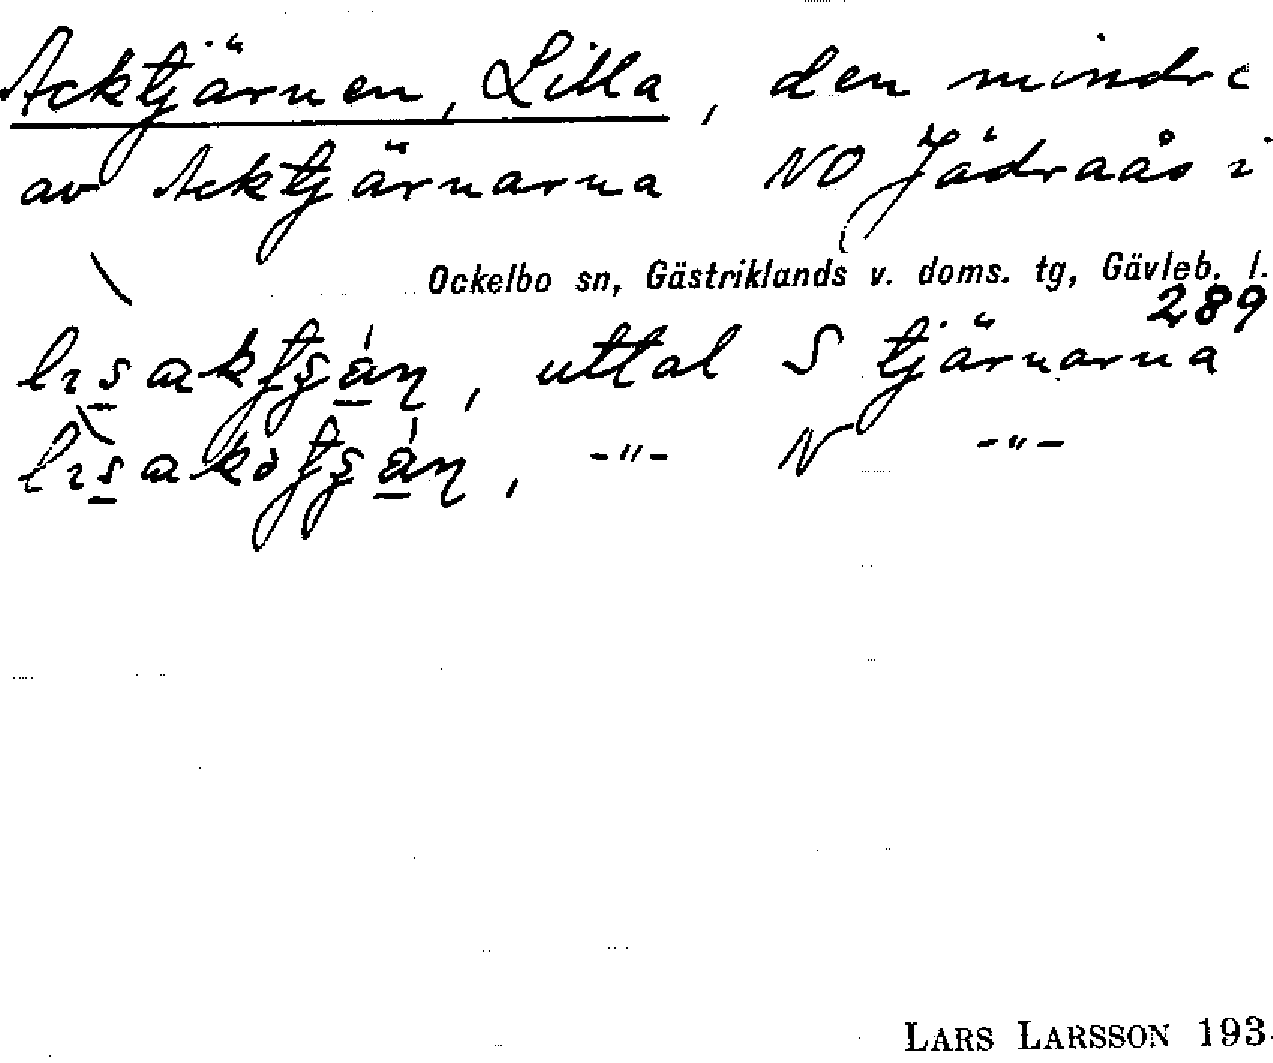 Acktjärnen, Lilla, den mindre
av Acktjärnarna NO Jädraås i
Ockelbo sn, Gästriklands v. doms. tg, Gävleb. l.
289
uttal S tjärnarna
-"- N -"-
LARS LARSSON 193